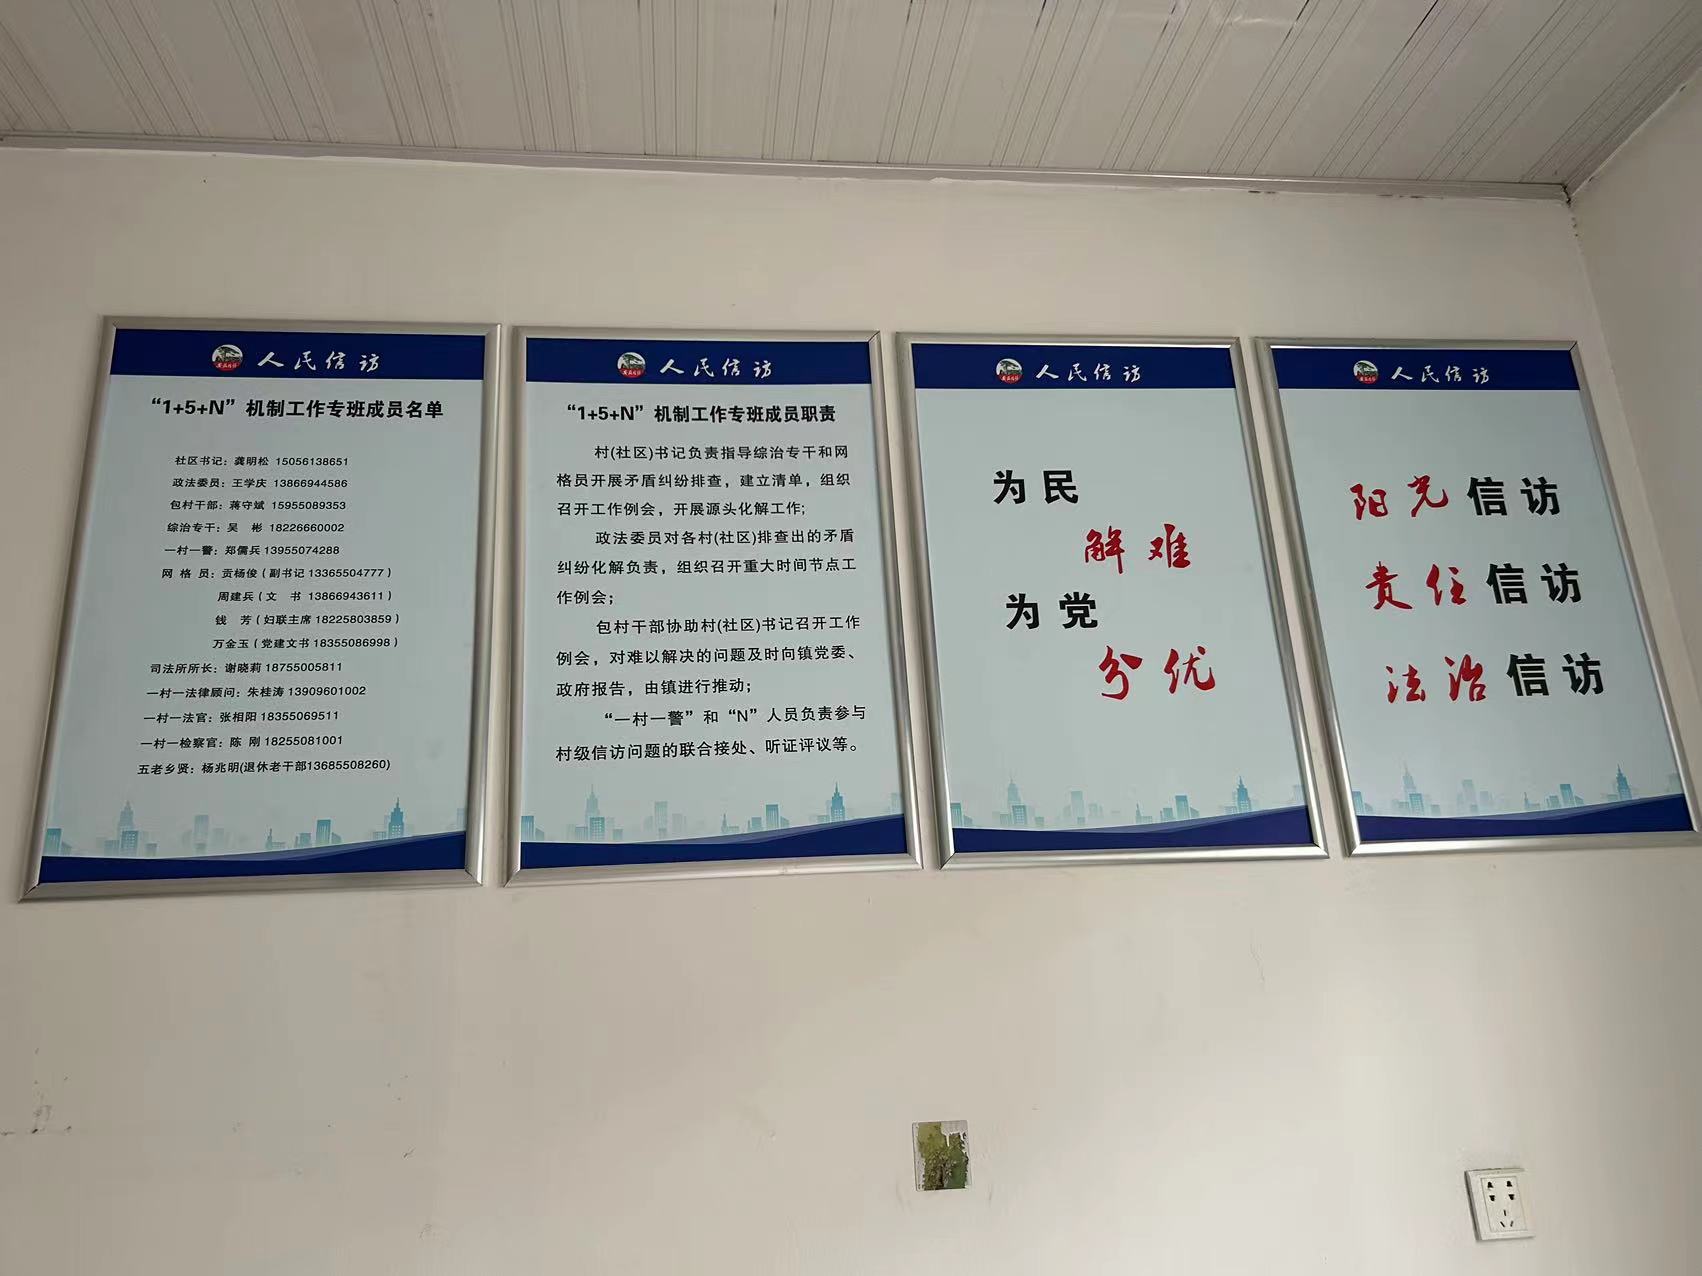 人民信访
“1+5+N”机制工作专班成员名单
社区书记：龚明松 15056138651
政法委员：王学庆 13866944586
包村干部：蒋守斌 15955089353
综治专干：吴 彬 18226660002
一村一警：郑儒兵 13955074288
网 格 员：贡杨俊（副书记 13365504777）
周建兵（文 书 13866943611）
钱 芳（妇联主席 18225803859）
万金玉（党建文书 18355086998）
司法所所长：谢晓莉 18755005811
一村一法律顾问：朱桂涛 13909601002
一村一法官：张相阳 18355069511
一村一检察官：陈 刚 18255081001
五老乡贤：杨兆明(退休老干部13685508260)
人民信访
“1+5+N”机制工作专班成员职责
村(社区)书记负责指导综治专干和网
格员开展矛盾纠纷排查，建立清单，组织
召开工作例会，开展源头化解工作;
政法委员对各村(社区)排查出的矛盾
纠纷化解负责，组织召开重大时间节点工
作例会;
包村干部协助村(社区)书记召开工作
例会，对难以解决的问题及时向镇党委、
政府报告，由镇进行推动;
“一村一警”和“N”人员负责参与
村级信访问题的联合接处、听证评议等。
人民信访
为民
解难
为党
分优
人民信访
阳光信访
责任信访
法治信访